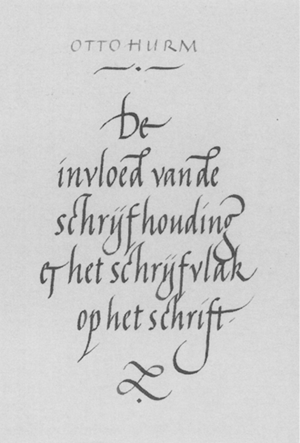 OTTO HURM
De
invloed van de
schrijfhouding
& het schrijfvlak
op het schrift.